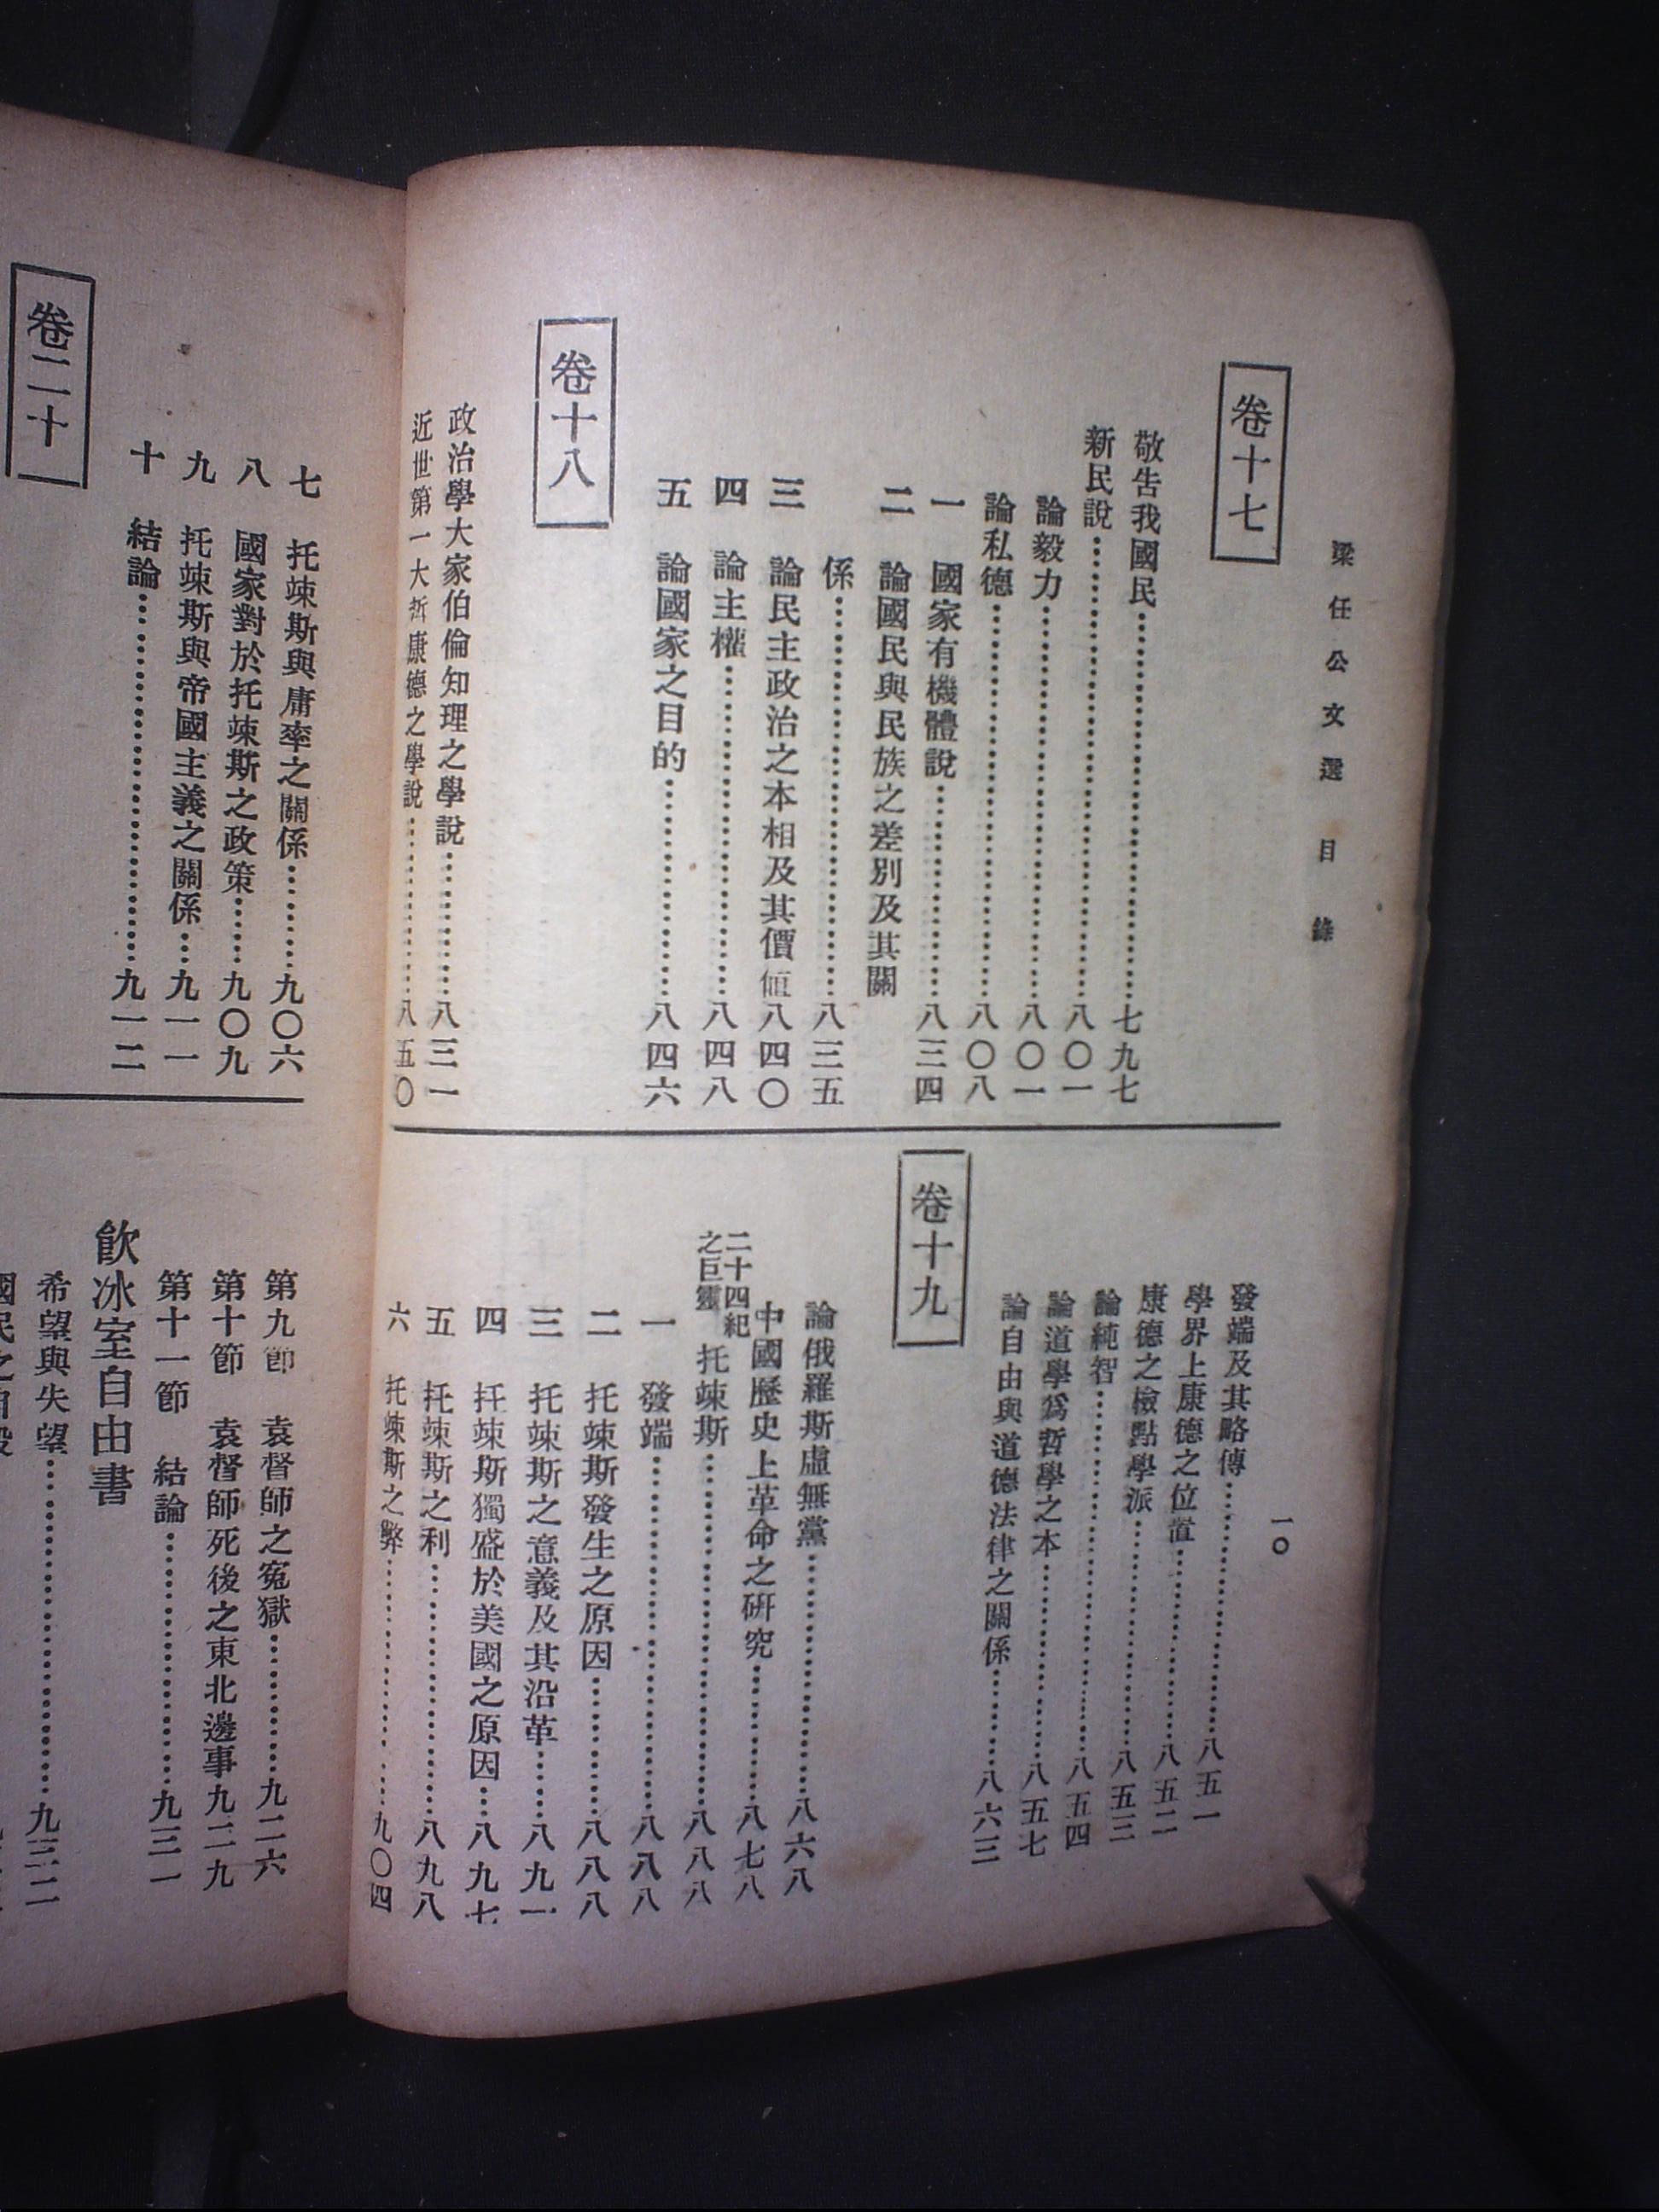 梁任公文選 目錄
一〇
卷十七
敬告我國民……七九七
新民說……八〇一
論毅力……八〇一
論私德……八〇八
一 國家有機體說……八三四
二 論國民與民族之差別及其關
係……八三五
三 論民主政治之本相及其價值八四〇
四 論主權……八四八
五 論國家之目的……八四六
卷十八
政治學大家伯倫知理之學說……八三一
近世第一大哲康德之學說……八五〇
發端及其略傳……八五一
學界上康德之位置……八五二
康德之檢點學派……八五三
論純智……八五四
論道學爲哲學之本……八五七
論自由與道德法律之關係……八六三
卷十九
論俄羅斯虛無黨……八六八
中國歷史上革命之研究……八七八
二十世紀之巨靈 托竦斯……八八八
一 發端……八八八
二 托竦斯發生之原因……八八八
三 托竦斯之意義及其沿革……八九一
四 托竦斯獨盛於美國之原因……八九七
五 托竦斯之利……八九八
六 托竦斯之弊……九〇四
七 托竦斯與庸率之關係……九〇六
八 國家對於托竦斯之政策……九〇九
九 托竦斯與帝國主義之關係……九一一
十 結論……九一二
卷二十
第九節 袁督師之冤獄……九二六
第十節 袁督師死後之東北邊事九二九
第十一節 結論……九三一
飲冰室自由書
希望與失望……九三二
國民之自殺